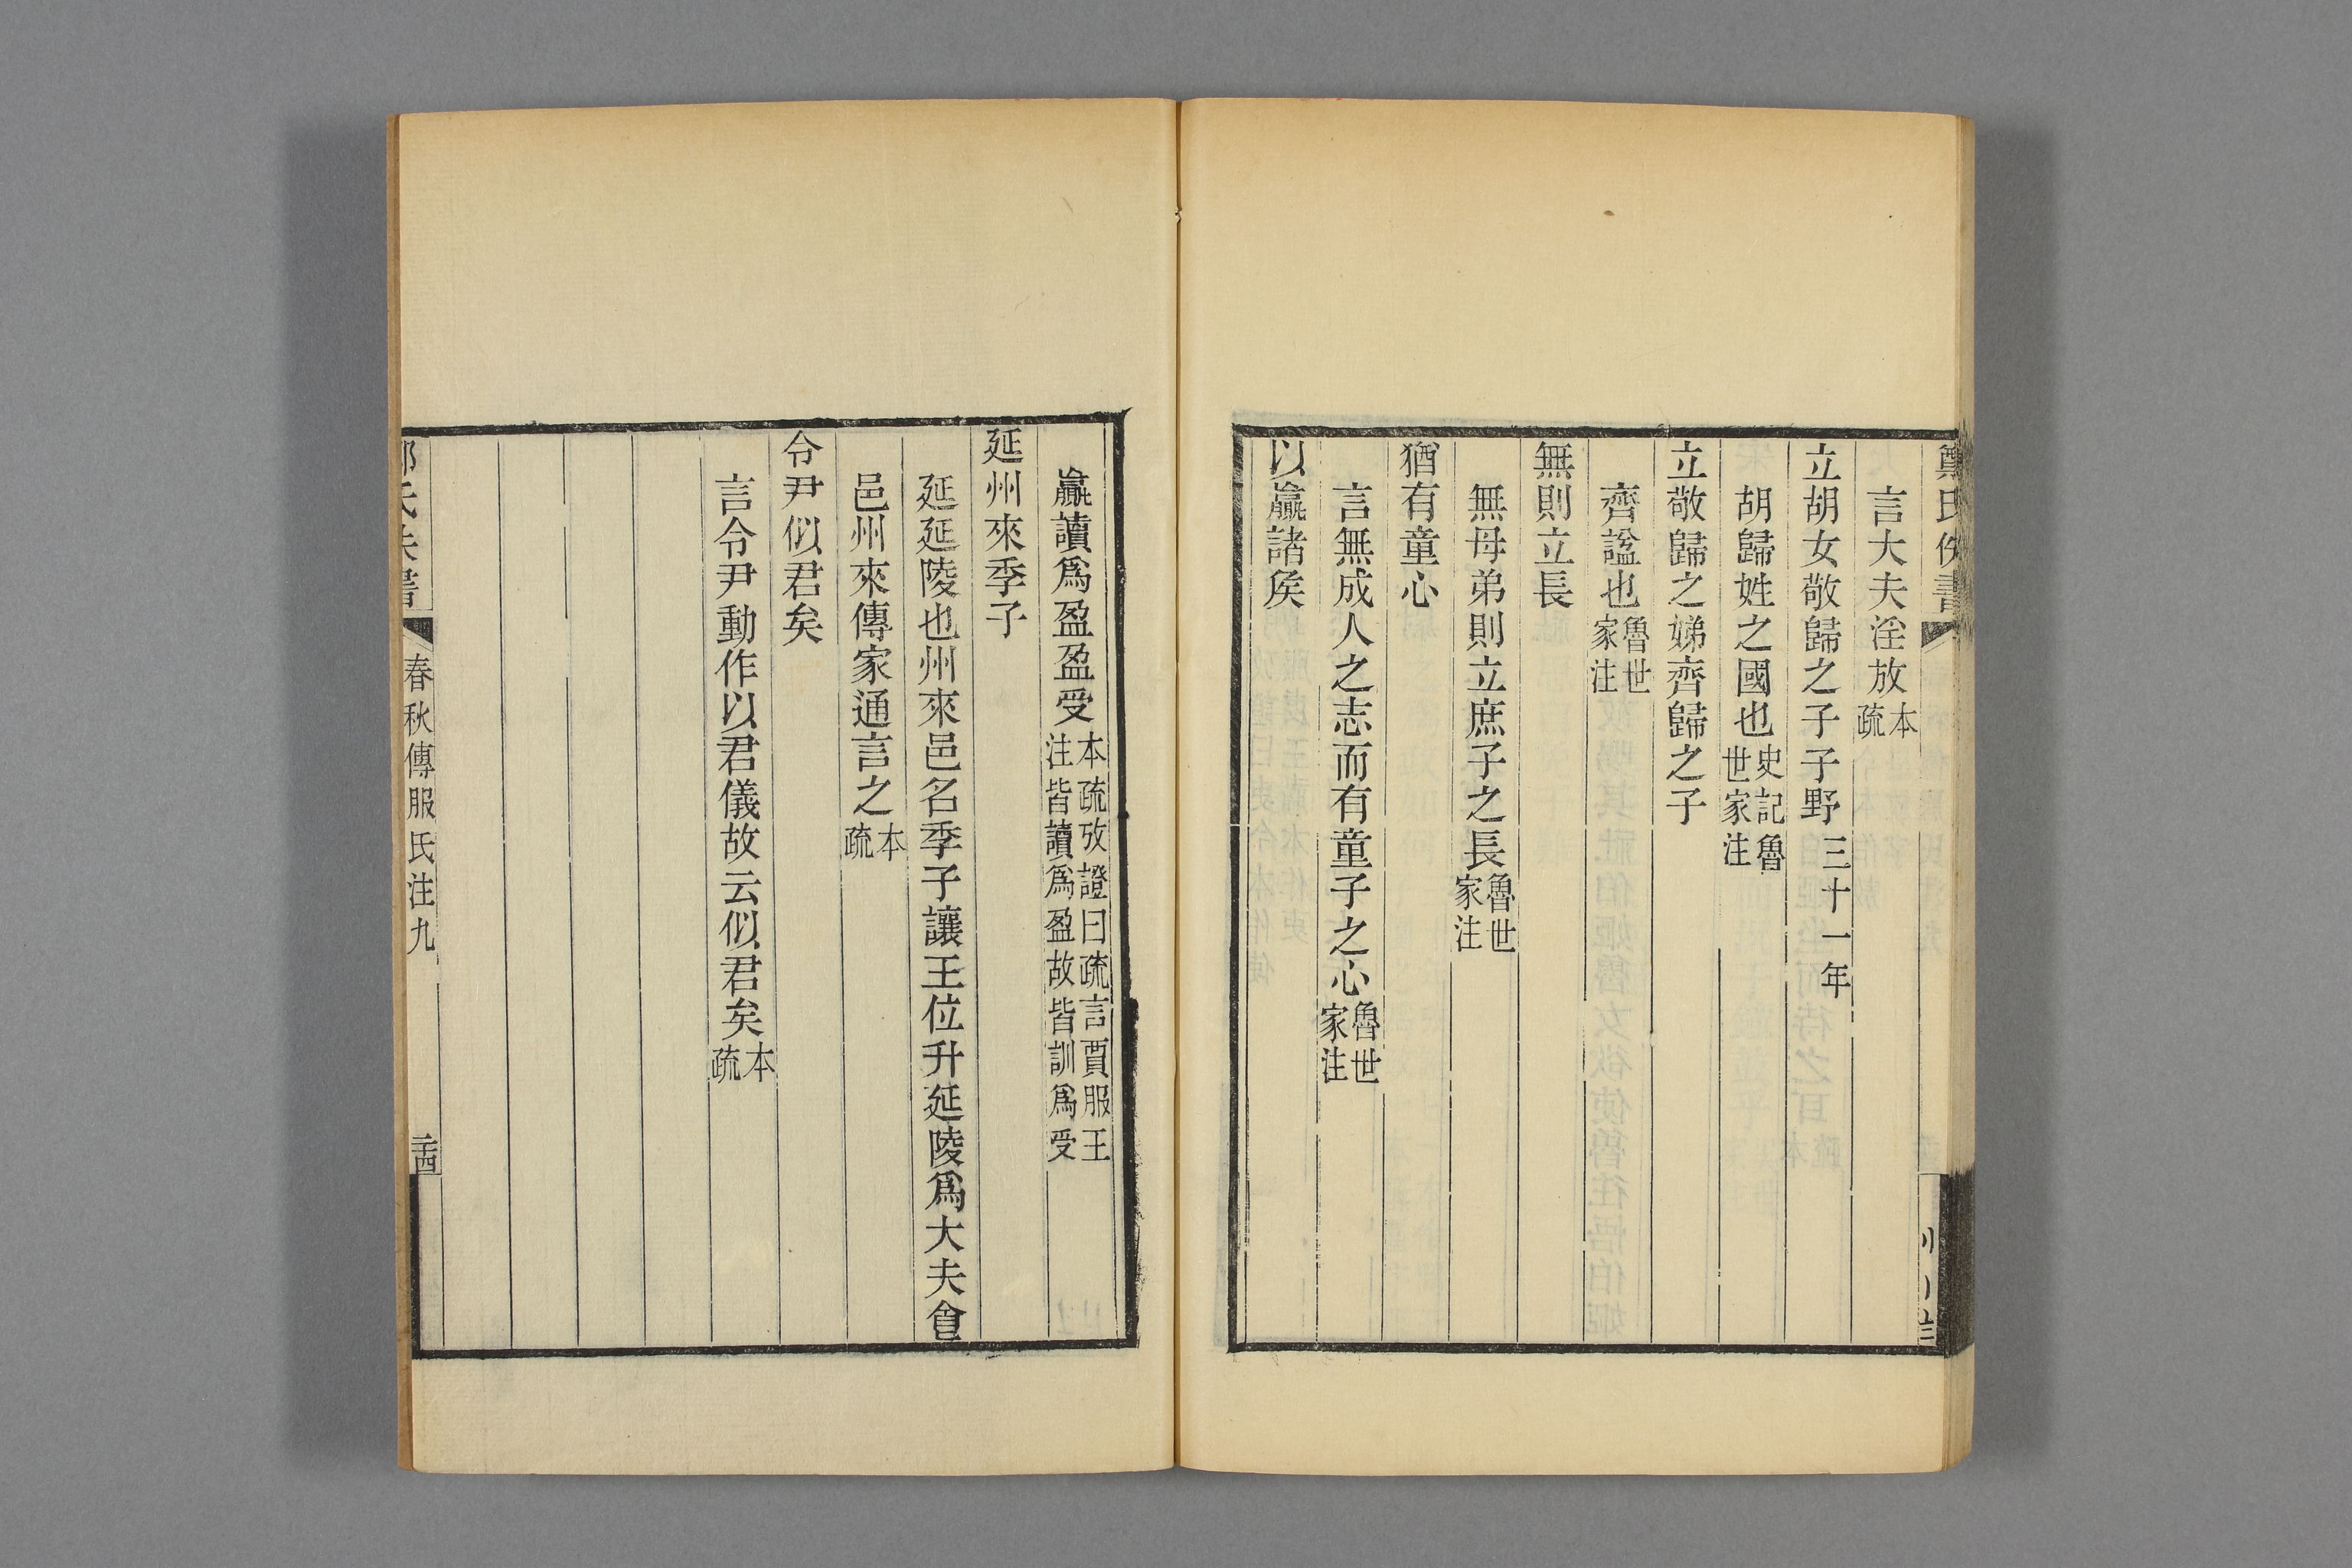 鄭氏佚書
言大夫淫放本疏
立胡女敬歸之子子野三十一年
胡歸姓之國也史記魯世家注
立敬歸之娣齊歸之子
齊諡也魯世家注
無則立長
無母弟則立庶子之長魯世家注
猶有童心
言無成人之志而有童子之心魯世家注
以贏諸矦
贏讀爲盈盈受本疏攷證曰疏言賈服王注皆讀爲盈故皆訓爲受
延州來季子
延延陵也州來邑名季子讓王位升延陵爲大夫食
邑州來傳家通言之本疏
令尹似君矣
言令尹動作以君儀故云似君矣本疏
春秋傳服氏注九